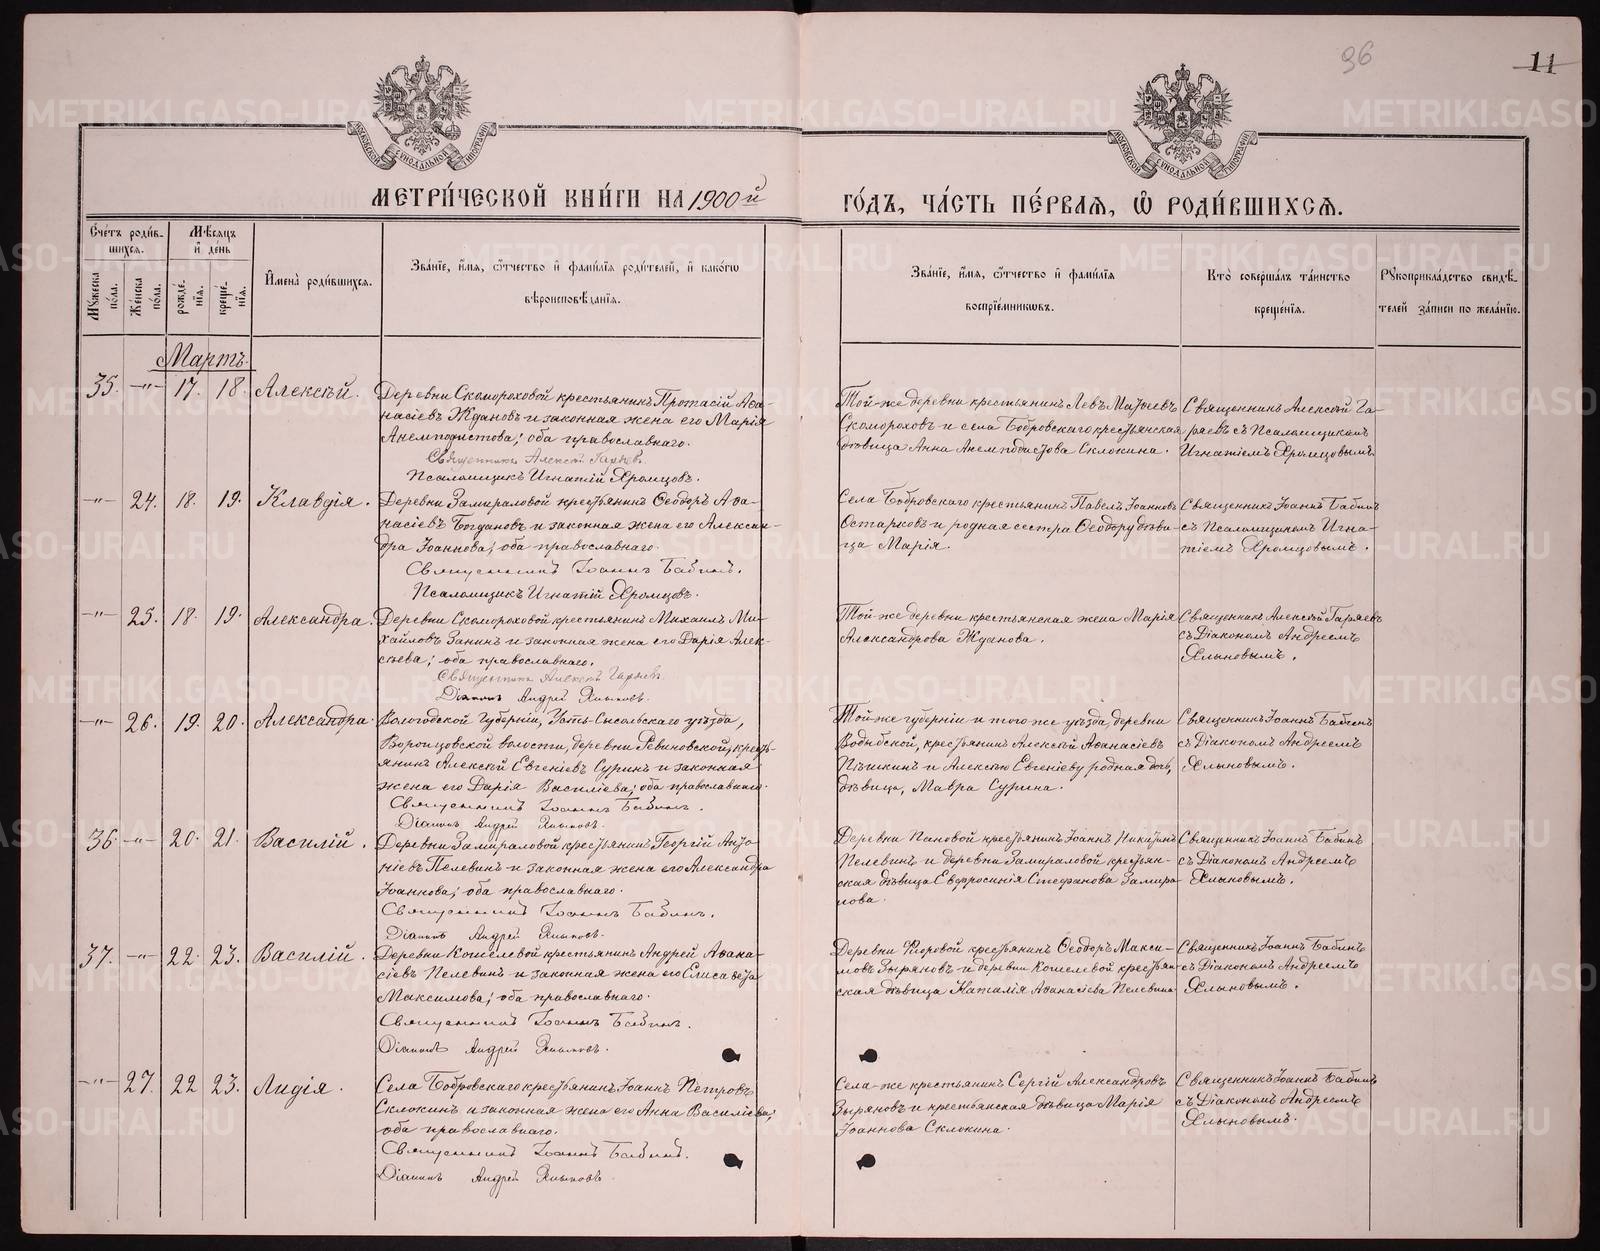 96
11
МОСКОВСКОЙ СѴНОДАЛЬНОЙ ТИПОГРАФІИ
МОСКОВСКОЙ СѴНОДАЛЬНОЙ ТИПОГРАФІИ
МЕТРИ́ЧЕСКОЙ КНИ́ГИ НА 1900й
ГО́ДЪ, ЧА́СТЬ ПЕ́РВАЯ, Ѡ РОДИ́ВШИХСЯ.
Сче́тъ роди́в-
шихся.
Мѣ́сяцъ
и́ де́нь
Мꙋ́жеска
по́ла.
Же́нска
по́ла.
рожде́-
нїя.
креще́-
нїя.
И҆мена̀ роди́вшихся.
Зва́нїе, и҆́мя, ѻ҆́тчество и҆ фами́лїя роди́телей, и҆ како́гѡ
вѣроисповѣ́данїя.
Зва́нїе, и҆́мя, ѻ҆́тчество и҆ фами́лїя
воспрїе́мникѡвъ.
Кто̀ соверша́лъ та́инство
креще́нїя.
Рꙋкоприкла́дство свидѣ́-
телей за́писи по жела́нїю.
Мартъ.
35. —„— 17. 18. Алексѣй.
Деревни Скомороховой крестьянинъ Протасій Аѳа-
насіевъ Ждановъ и законная жена его Марія
Анемподистова; оба православнаго.
Священникъ Алексѣй Гаряевъ.
Псаломщикъ Игнатій Хромцовъ.
Той-же деревни крестьянинъ Левъ Матѳеевъ
Скомороховъ и села Бобровскаго крестьянская
дѣвица Анна Анемподистова Склокина.
Священникъ Алексѣй Га-
ряевъ съ Псаломщикомъ
Игнатіемъ Хромцовымъ.
—„— 24. 18. 19. Клавдія.
Деревни Замираловой крестьянинъ Ѳеодоръ Аѳа-
насіевъ Богдановъ и законная жена его Алексан-
дра Іоаннова; оба православнаго.
Священникъ Іоаннъ Бабинъ.
Псаломщикъ Игнатій Хромцовъ.
Села Бобровскаго крестьянинъ Павелъ Іоанновъ
Остарковъ и родная сестра Ѳеодору дѣви-
ца Марія.
Священникъ Іоаннъ Бабинъ
съ Псаломщикомъ Игна-
тіемъ Хромцовымъ.
—„— 25. 18. 19. Александра.
Деревни Скомороховой крестьянинъ Михаилъ Ми-
хайловъ Занинъ и законная жена его Дарія Алек-
сѣева; оба православнаго.
Священникъ Алексѣй Гаряевъ.
Діаконъ Андрей Хлыновъ.
Той-же деревни крестьянская жена Марія
Александрова Жданова.
Священникъ Алексѣй Гаряевъ
съ Діакономъ Андреемъ
Хлыновымъ.
—„— 26. 19. 20. Александра.
Вологодской Губерніи, Усть-Сысольскаго уѣзда,
Воронцовской волости, деревни Ревиновской, кресть-
янинъ Алексѣй Евгеніевъ Суринъ и законная
жена его Дарія Василіева; оба православнаго.
Священникъ Іоаннъ Бабинъ.
Діаконъ Андрей Хлыновъ.
Той-же губерніи и того-же уѣзда, деревни
крестьянинъ Алексѣй Аѳанасіевъ
Пѣшкинъ и Алексѣю Евгеніеву родная
дѣвица, Мавра Сурина.
Священникъ Іоаннъ Бабинъ
съ Діакономъ Андреемъ
Хлыновымъ.
36. —„— 20. 21. Василій.
Деревни Замираловой крестьянинъ Георгій Анто-
ніевъ Пелевинъ и законная жена его Александра
Іоаннова; оба православнаго.
Священникъ Іоаннъ Бабинъ.
Діаконъ Андрей Хлыновъ.
Деревни Пановой крестьянинъ Іоаннъ Никитинъ
Пелевинъ и деревни Замираловой крестьян-
ская дѣвица Евфросинія Стефанова Замира-
лова.
Священникъ Іоаннъ Бабинъ
съ Діакономъ Андреемъ
Хлыновымъ.
37. —„— 22. 23. Василій.
Деревни Кошелевой крестьянинъ Андрей Аѳана-
сіевъ Пелевинъ и законная жена его Елисавета
Максимова; оба православнаго.
Священникъ Іоаннъ Бабинъ.
Діаконъ Андрей Хлыновъ.
Деревни крестьянинъ Ѳеодоръ Макси-
мовъ Зыряновъ и деревни Кошелевой крестьян-
ская дѣвица Наталія Аѳанасіева Пелевина.
Священникъ Іоаннъ Бабинъ
съ Діакономъ Андреемъ
Хлыновымъ.
—„— 27. 22 23. Лидія.
Села Бобровскаго крестьянинъ Іоаннъ Петровъ
Склокинъ и законная жена его Анна Василіева;
оба православнаго.
Священникъ Іоаннъ Бабинъ.
Діаконъ Андрей Хлыновъ
Села-же крестьянинъ Сергій Александровъ
Зыряновъ и крестьянская дѣвица Марія
Іоаннова Склокина.
Священникъ Іоаннъ Бабинъ
съ Діакономъ Андреемъ
Хлыновымъ.
METRIKI.GASO-URAL.RU